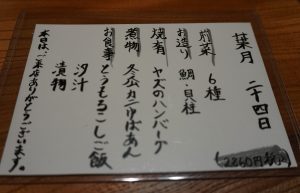 葉月 二十四日
前菜 6種
お造り 鯛・貝柱
焼肴 ヤズのハンバーグ
煮物 冬瓜カニかけばあん
お食事 とうもろこしご飯
汐汁
漬物
本日は、ご来店ありがとうございます。
2860円税込